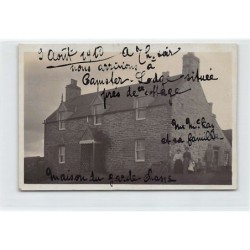 Août A 7h. soir
nous arrivions à
Camster - Lodge située
près de cottage
Mr Mc Kay
et sa famille
Maison du garde chasse